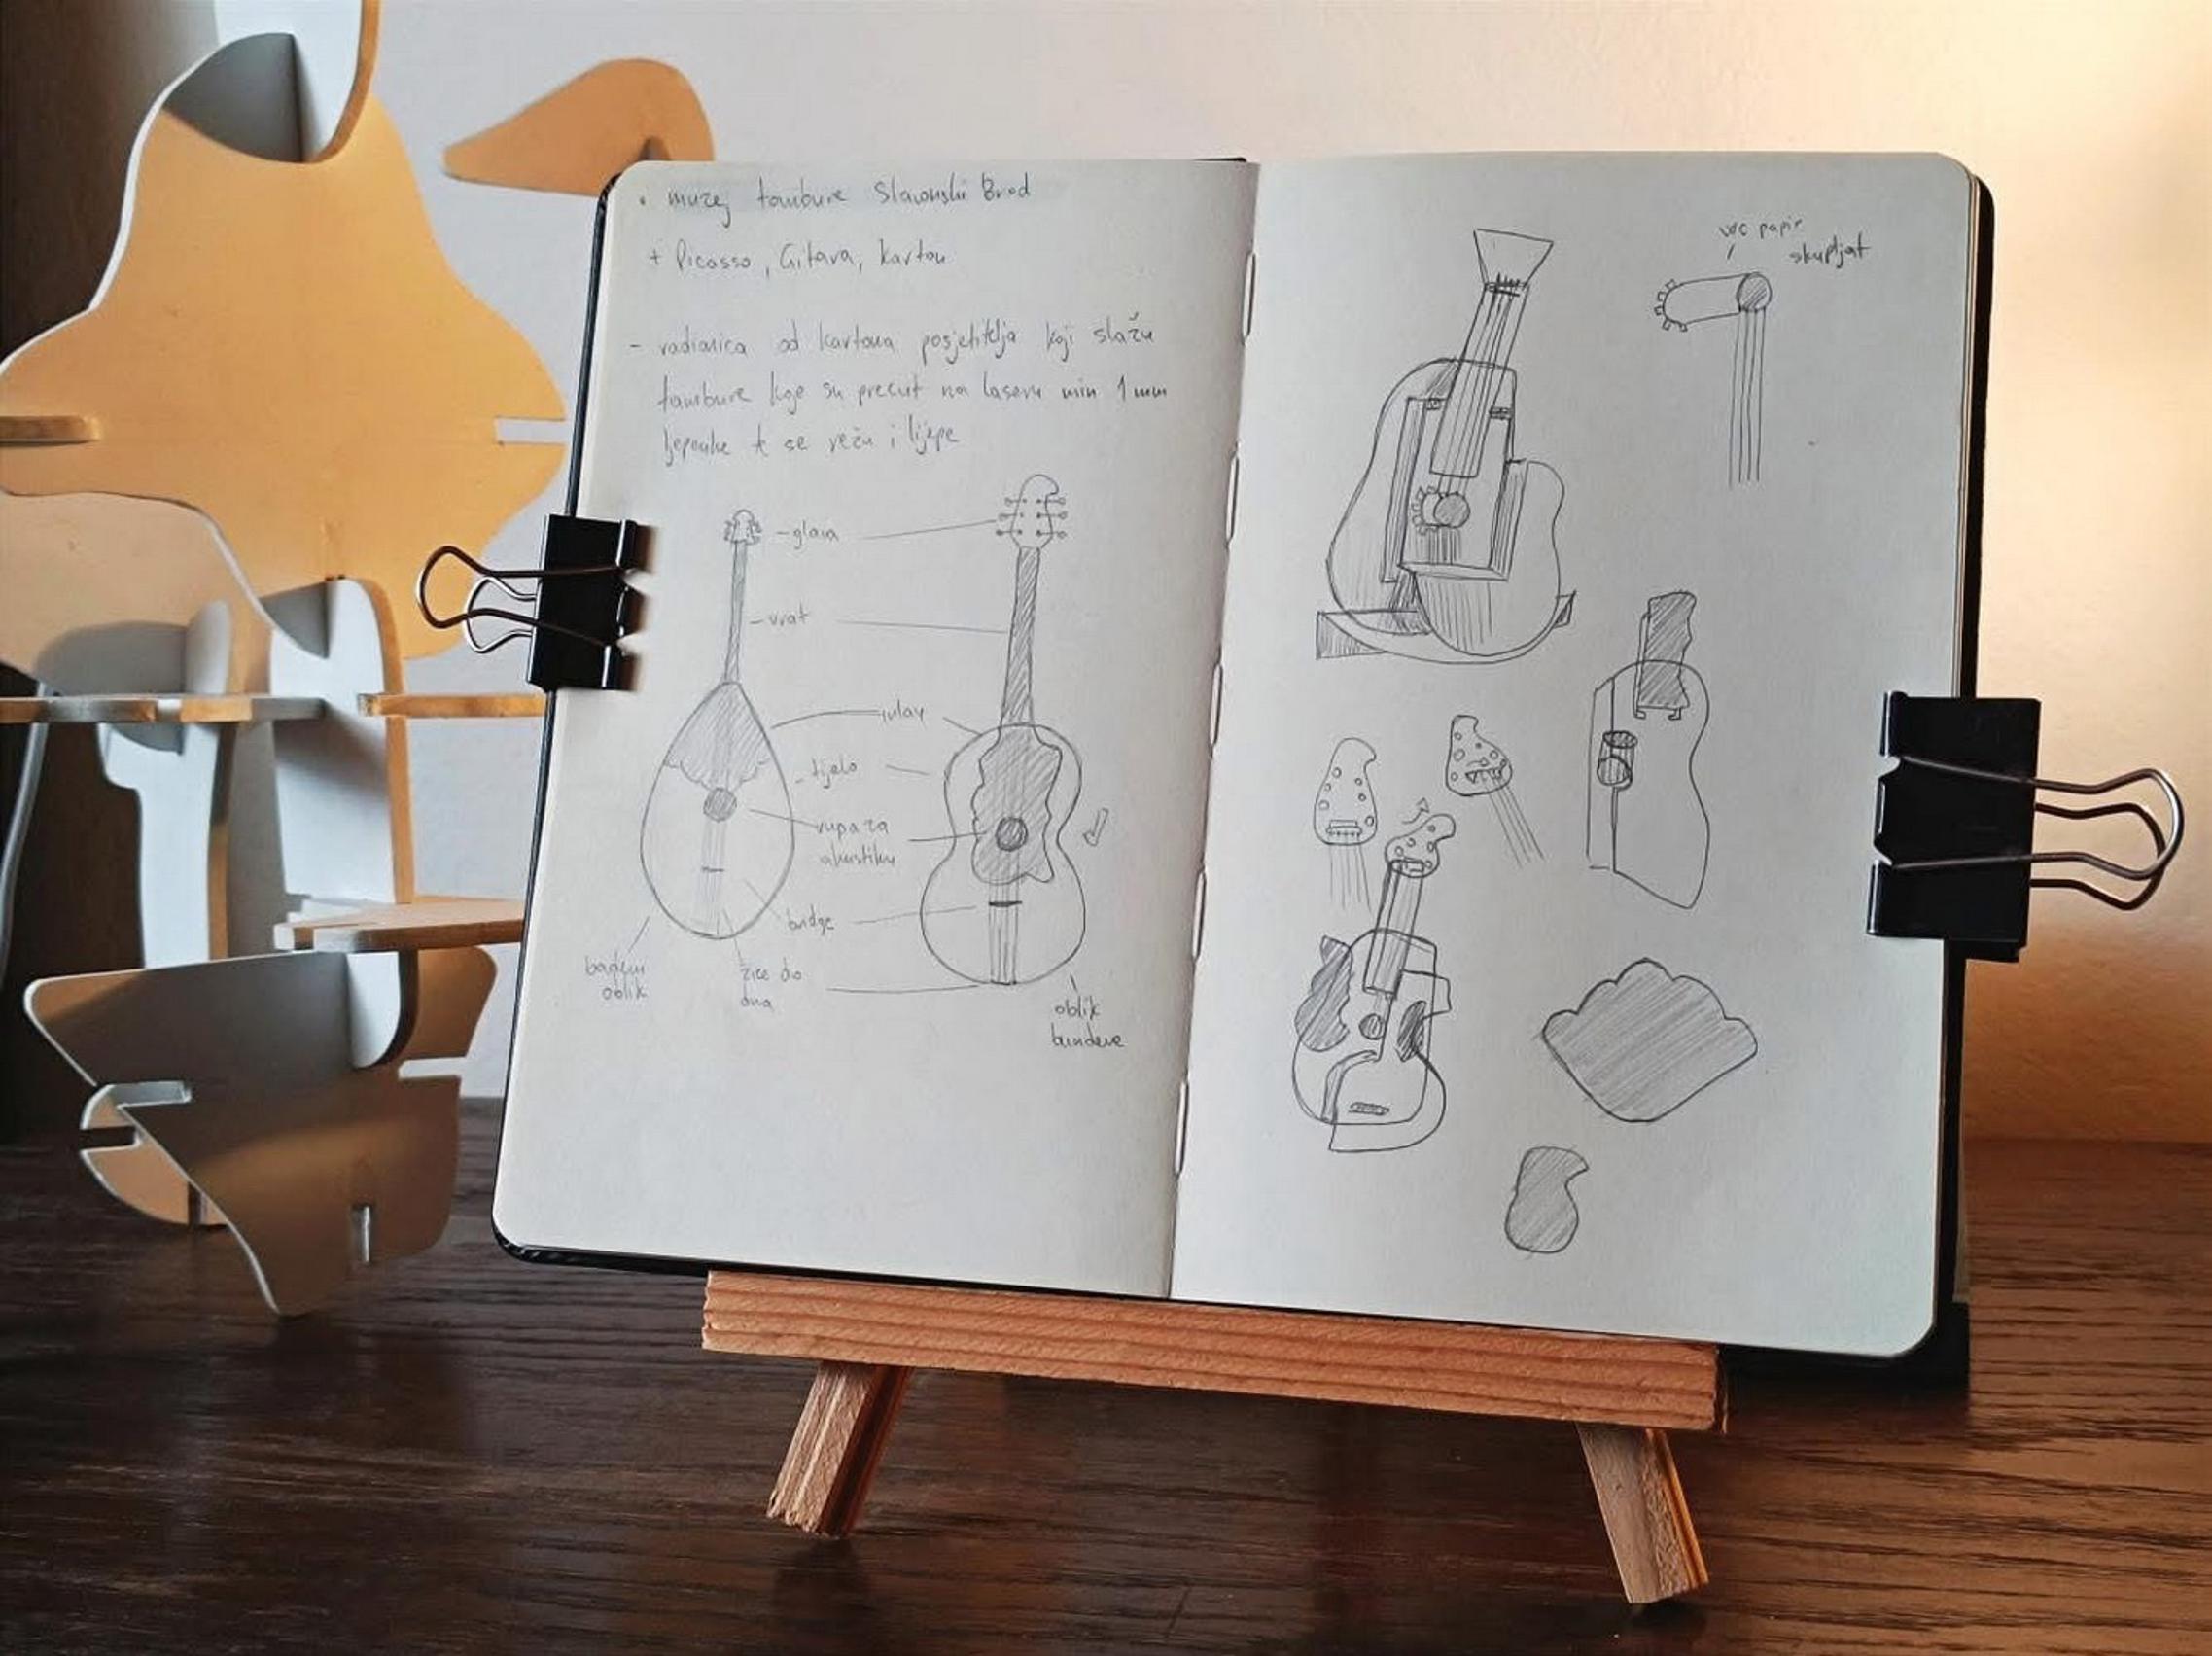 • muzej tambure Slavonski Brod
+ Picasso, Gitara, karton
- radionica od kartona posjetitelja koji slažu
tambure koje su precut na laseru min 1mm
ljepenke te se režu i lijepe
- glava
- vrat
- tijelo
rupa za
akustiku
bridge
badem
oblik
žice do
dna
oblik
bundeve
wc papir
skupljat